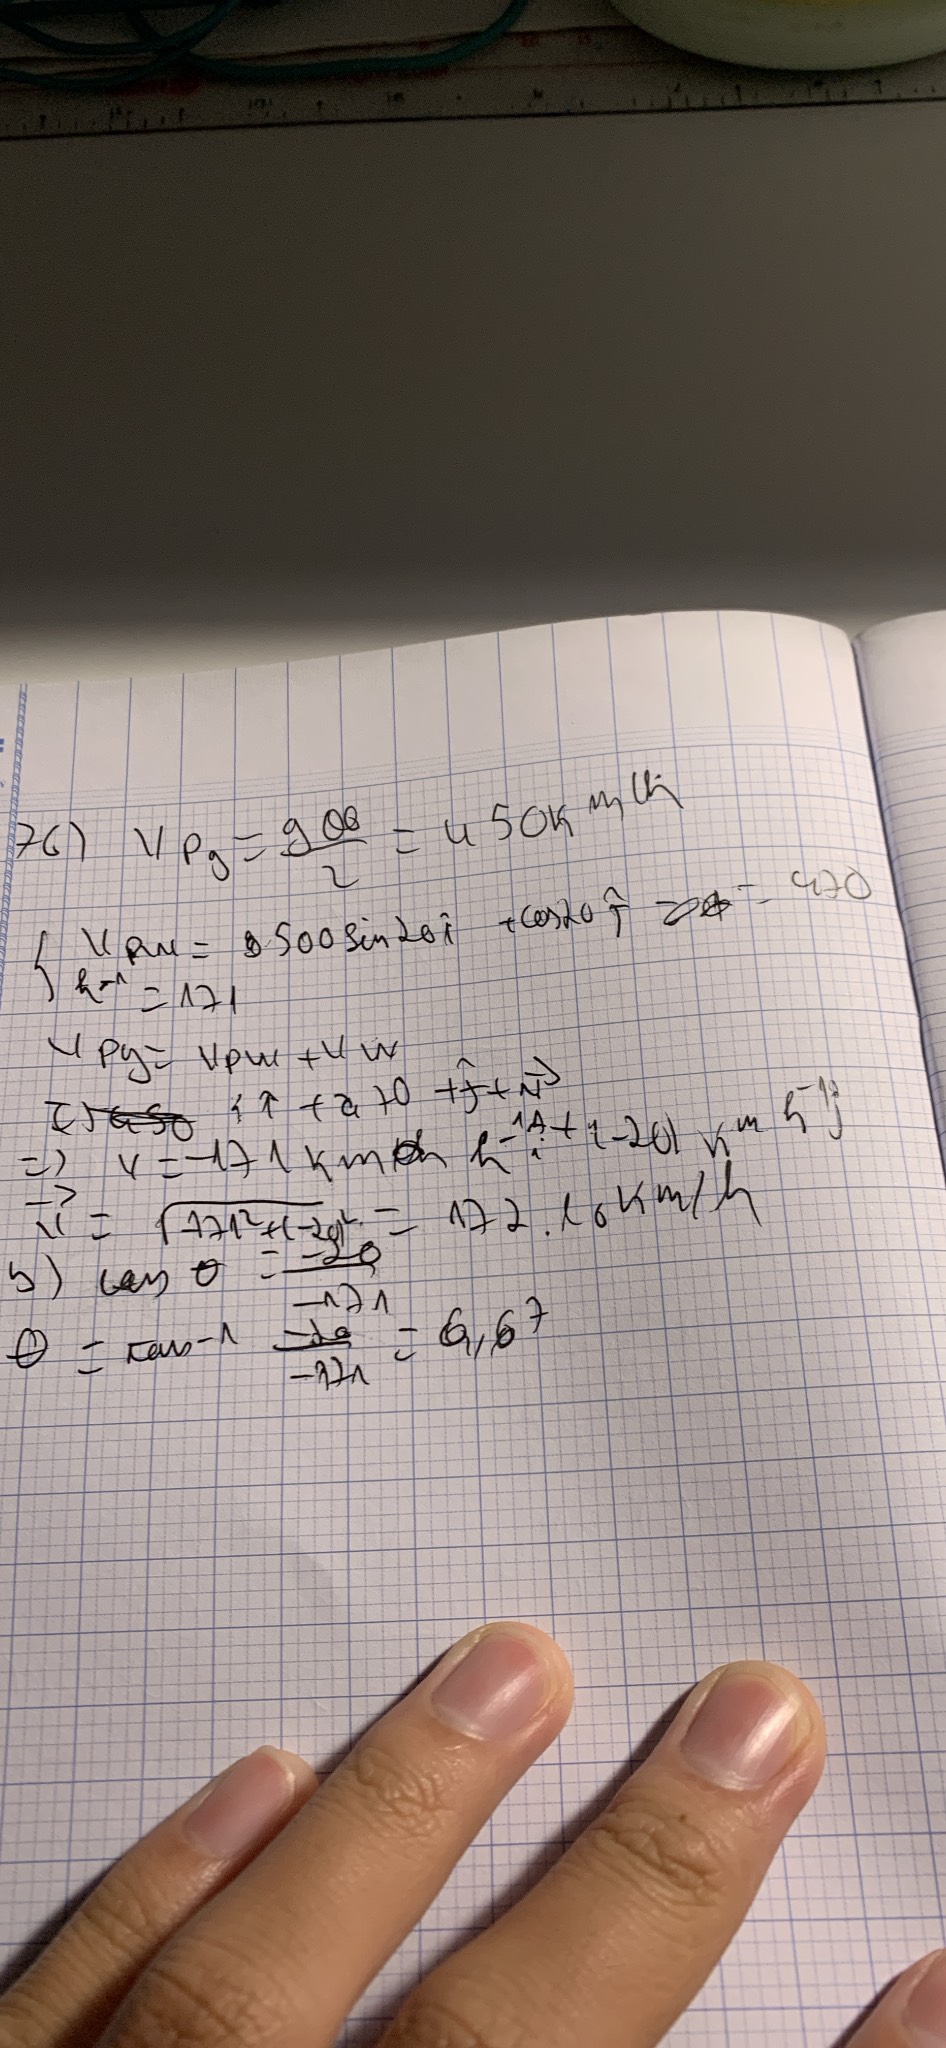 76) V Pg = 900/2 = 450 km/h
V PW = 500 sin 20 î + cos 20 ĵ = 470
h⁻¹ = 171
V Pg = V PW + V W
î + 470 + ĵ +
=> V = -171 km h⁻¹ î + (-20) km h⁻¹ ĵ
= √171² + (-20)² = 172.16 km/h
b) tan θ = -20/-171
θ = tan⁻¹ -20/-171 = 6,67